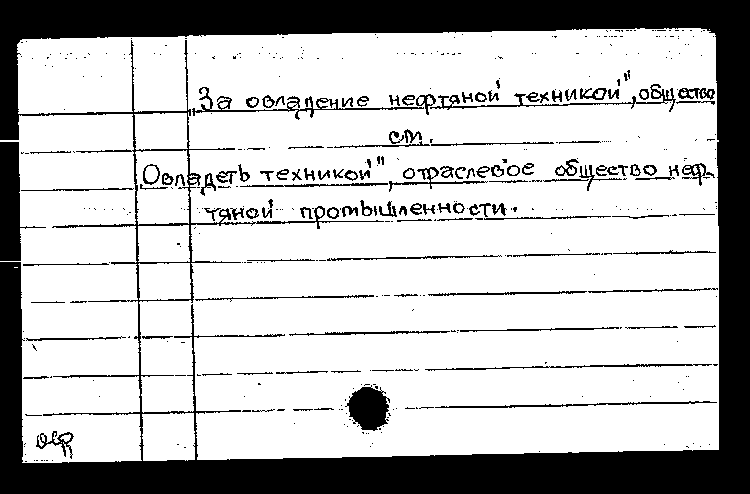 „За овладение нефтяной техникой", общество
см.
„Овладеть техникой", отраслевое общество неф-
тяной промышленности.